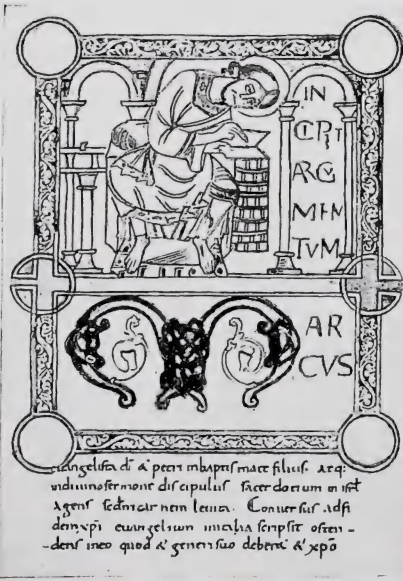 IN
CIPIT
ARGV
MEN
TVM
M AR
CVS
euangelista di & petri inbaptismate filius. atq:
indiuino sermone discipulus sacerdotium in isrl
Agens scdm carnem leuita. Conuersus adfi
dem xpi euangelium initalia scripsit osten-
-dens ineo quod & generi suo deberet & xpo